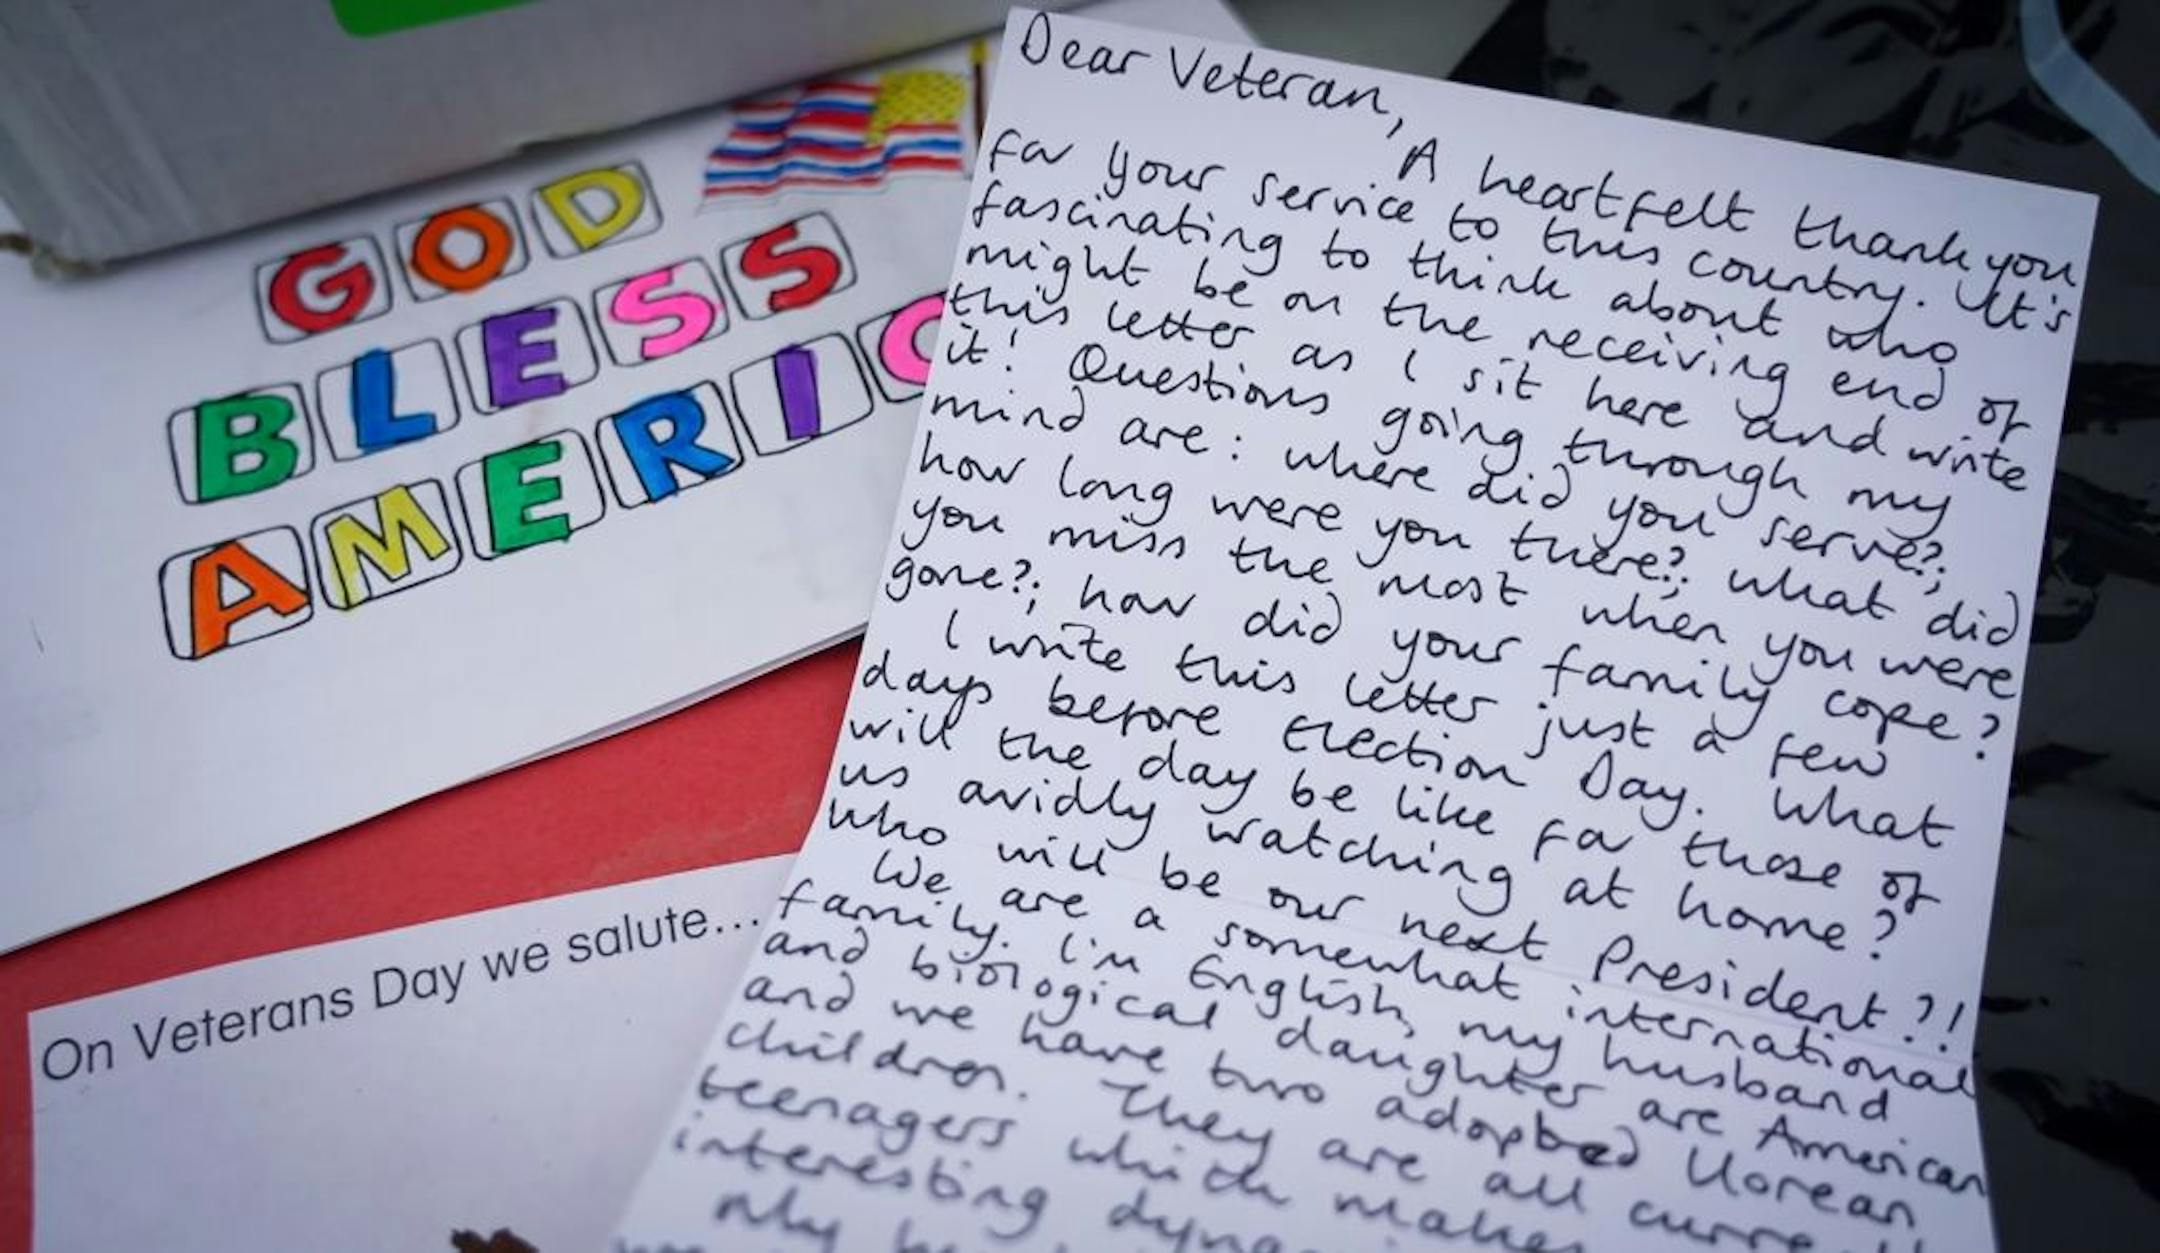 GOD
BLESS
AMERIC
On Veterans Day we salute...
Dear Veteran,
A heartfelt thank you
for your service to this country. It's
fascinating to think about who
might be on the receiving end of
this letter as I sit here and write
it! Questions going through my
mind are: where did you serve?;
how long were you there?; what did
you miss the most when you were
gone?; how did your family cope?
I write this letter just a few
days before Election Day. What
will the day be like for those of
us avidly watching at home?
Who will be our next President?!
We are a somewhat international
family. I'm English, my husband
and biological daughter are American
and we have two adopted Korean
children. They are all
teenagers which makes
interesting
My